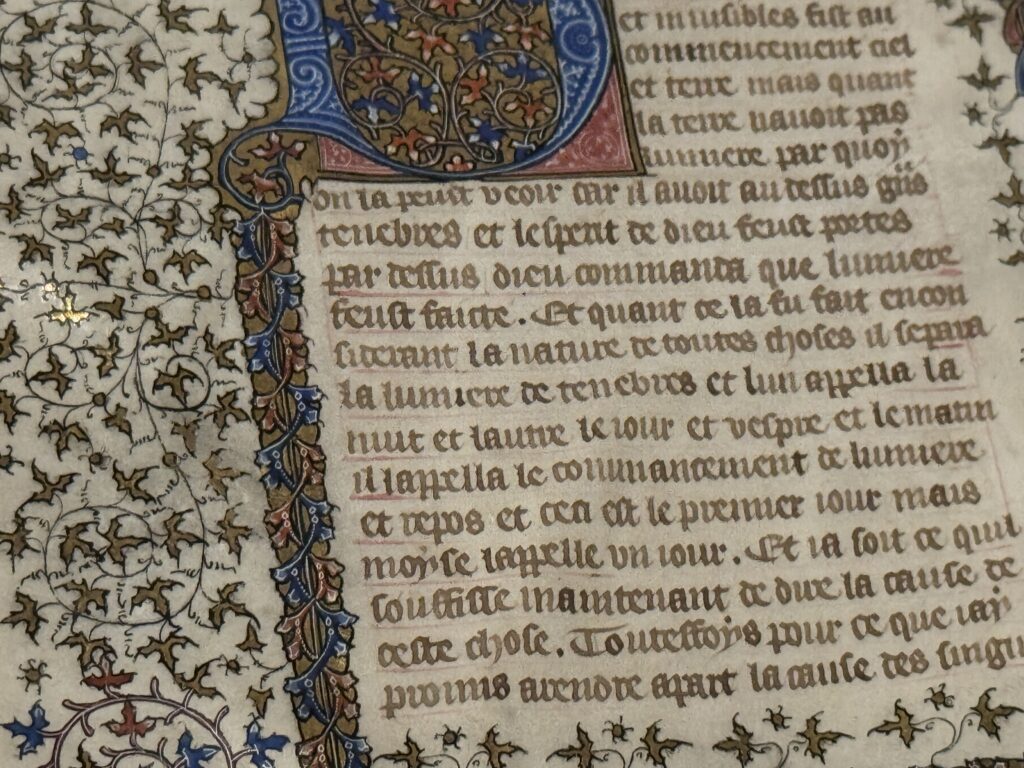 et inuisibles fist au
commencement ciel
et terre mais quant
la terre nauoit pas
lumiere par quoy
on la peust veoir car il auoit au dessus
tenebres et lesperit de dieu feust portes
par dessus dieu commanda que lumiere
feust faicte. Et quant ce la fu fait en con
siderant la nature de toutes choses il separa
la lumiere de tenebres et lun appella la
nuit et lautre le iour et vespre et le matin
il lappella le commancement de lumiere
et repos et ceci est le premier iour mais
moyse lappelle vn iour. Et ia soit ce quil
souffisse maintenant de dire la cause de
ceste chose. Touteffoys pour ce que iay
promis a rendre apart la cause des singu